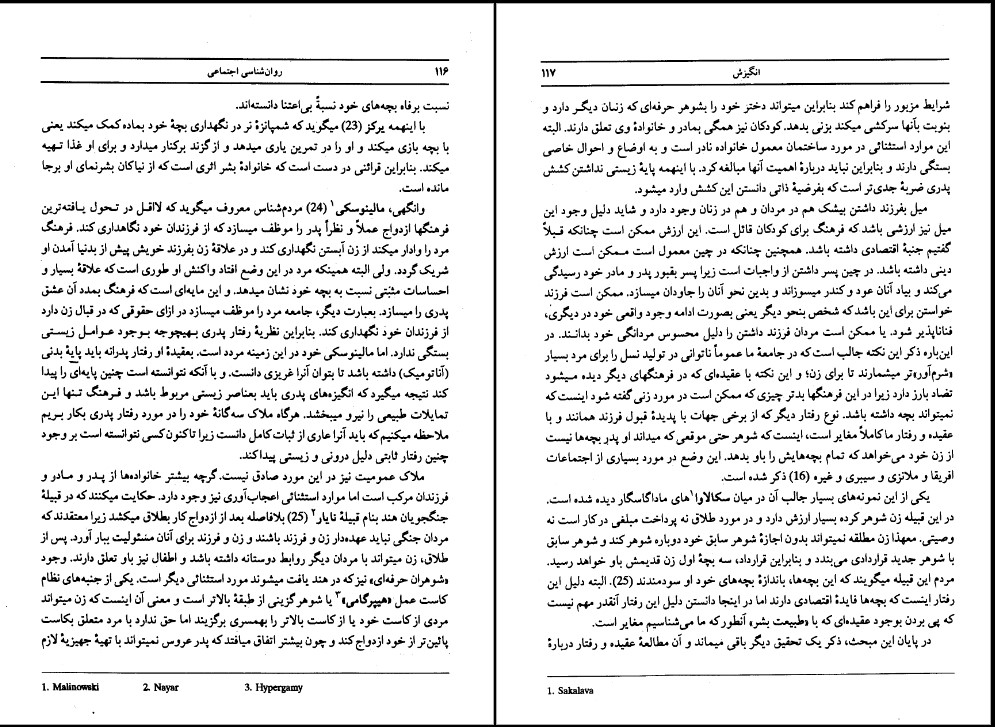 ۱۱۶ روان‌شناسی اجتماعی
نسبت برفاه بچه‌های خود نسبةً بی‌اعتنا دانسته‌اند.
با اینهمه یرکز (23) میگوید که شمپانزهٔ نر در نگهداری بچهٔ خود بماده کمک میکند یعنی
با بچه بازی میکند و او را در تمرین یاری میدهد و از گزند برکنار میدارد و برای او غذا تهیه
میکند. بنابراین قرائنی در دست است که خانوادهٔ بشر اثری است که از نیاکان بشرنمای او برجا
مانده است.
وانگهی، مالینوسکی۱ (24) مردم‌شناس معروف میگوید که لااقل در تحول یافته‌ترین
فرهنگها ازدواج عملاً و نظراً پدر را موظف میسازد که از فرزندان خود نگاهداری کند. فرهنگ
مرد را وادار میکند از زن آبستن نگهداری کند و در علاقهٔ زن بفرزند خویش پیش از بدنیا آمدن او
شریک گردد. ولی البته همینکه مرد در این وضع افتاد واکنش او طوری است که علاقهٔ بسیار و
احساسات مثبتی نسبت به بچه خود نشان میدهد. و این مایه‌ای است که فرهنگ بمدد آن عشق
پدری را میسازد. بعبارت دیگر، جامعه مرد را موظف میسازد در ازای حقوقی که در قبال زن دارد
از فرزندان خود نگهداری کند. بنابراین نظریهٔ رفتار پدری بهیچوجه بوجود عوامل زیستی
بستگی ندارد. اما مالینوسکی خود در این زمینه مردد است. بعقیدهٔ او رفتار پدرانه باید پایهٔ بدنی
(آناتومیک) داشته باشد تا بتوان آنرا غریزی دانست. و با آنکه نتوانسته است چنین پایه‌ای را پیدا
کند نتیجه میگیرد که انگیزه‌های پدری باید بعناصر زیستی مربوط باشد و فرهنگ تنها این
تمایلات طبیعی را نیرو میبخشد. هرگاه ملاک سه‌گانهٔ خود را در مورد رفتار پدری بکار بریم
ملاحظه میکنیم که باید آنرا عاری از ثبات کامل دانست زیرا تاکنون کسی نتوانسته است بر وجود
چنین رفتار ثابتی دلیل درونی و زیستی پیدا کند.
ملاک عمومیت نیز در این مورد صادق نیست. گرچه بیشتر خانواده‌ها از پدر و مادر و
فرزندان مرکب است اما موارد استثنائی اعجاب‌آوری نیز وجود دارد. حکایت میکنند که در قبیلهٔ
جنگجویان هند بنام قبیلهٔ نایار۲ (25) بلافاصله بعد از ازدواج کار بطلاق میکشد زیرا معتقدند که
مردان جنگی نباید عهده‌دار زن و فرزند باشند و زن و فرزند برای آنان مسئولیت ببار آورد. پس از
طلاق، زن میتواند با مردان دیگر روابط دوستانه داشته باشد و اطفال نیز باو تعلق دارند. وجود
«شوهران حرفه‌ای» نیز که در هند یافت میشوند مورد استثنائی دیگر است. یکی از جنبه‌های نظام
کاست عمل «هیپرگامی»۳ یا شوهرگزینی از طبقهٔ بالاتر است و معنی آن اینست که زن میتواند
مردی از کاست خود یا از کاست بالاتر را بهمسری برگزیند اما حق ندارد با مرد متعلق بکاست
پائین‌تر از خود ازدواج کند و چون بیشتر اتفاق میافتد که پدر عروس نمیتواند با تهیهٔ جهیزیهٔ لازم
1. Malinowski 2. Nayar 3. Hypergamy
انگیزش ۱۱۷
شرایط مزبور را فراهم کند بنابراین میتواند دختر خود را بشوهر حرفه‌ای که زنان دیگر دارد و
بنوبت بآنها سرکشی میکند بزنی بدهد. کودکان نیز همگی بمادر و خانوادهٔ وی تعلق دارند. البته
این موارد استثنائی در مورد ساختمان معمول خانواده نادر است و به اوضاع و احوال خاصی
بستگی دارند و بنابراین نباید دربارهٔ اهمیت آنها مبالغه کرد. با اینهمه پایهٔ زیستی نداشتن کشش
پدری ضربهٔ جدی‌تر است که بفرضیهٔ ذاتی دانستن این کشش وارد میشود.
میل بفرزند داشتن بیشک هم در مردان و هم در زنان وجود دارد و شاید دلیل وجود این
میل نیز ارزشی باشد که فرهنگ برای کودکان قائل است. این ارزش ممکن است چنانکه قبلاً
گفتیم جنبهٔ اقتصادی داشته باشد. همچنین چنانکه در چین معمول است ممکن است ارزش
دینی داشته باشد. در چین پسر داشتن از واجبات است زیرا پسر بقبور پدر و مادر خود رسیدگی
می‌کند و بیاد آنان عود و کندر میسوزاند و بدین نحو آنان را جاودان میسازد. ممکن است فرزند
خواستن برای این باشد که شخص بنحو دیگر یعنی بصورت ادامه وجود واقعی خود در دیگری،
فناناپذیر شود. یا ممکن است مردان فرزند داشتن را دلیل محسوس مردانگی خود بدانند. در
این‌باره ذکر این نکته جالب است که در جامعهٔ ما عموماً ناتوانی در تولید نسل را برای مرد بسیار
«شرم‌آور»تر میشمارند تا برای زن؛ و این نکته با عقیده‌ای که در فرهنگهای دیگر دیده میشود
تضاد بارز دارد زیرا در این فرهنگها بدتر چیزی که ممکن است در مورد زنی گفته شود اینست که
نمیتواند بچه داشته باشد. نوع رفتار دیگر که از برخی جهات با پدیدهٔ قبول فرزند همانند و با
عقیده و رفتار ما کاملاً مغایر است، اینست که شوهر حتی موقعی که میداند او پدر بچه‌ها نیست
از زن خود می‌خواهد که تمام بچه‌هایش را باو بدهد. این وضع در مورد بسیاری از اجتماعات
افریقا و ملانزی و سیبری و غیره (16) ذکر شده است.
یکی از این نمونه‌های بسیار جالب آن در میان سکالاوا۱های ماداگاسگار دیده شده است.
در این قبیله زن شوهر کرده بسیار ارزش دارد و در مورد طلاق نه پرداخت مبلغی در کار است نه
وصیتی. معهذا زن مطلقه نمیتواند بدون اجازهٔ شوهر سابق خود دوباره شوهر کند و شوهر سابق
با شوهر جدید قراردادی می‌بندد و بنابراین قرارداد، سه بچهٔ اول زن قدیمش باو خواهد رسید.
مردم این قبیله میگویند که این بچه‌ها، باندازهٔ بچه‌های خود او سودمندند (25). البته دلیل این
رفتار اینست که بچه‌ها فایدهٔ اقتصادی دارند اما در اینجا دانستن دلیل این رفتار آنقدر مهم نیست
که پی بردن بوجود عقیده‌ای که با «طبیعت بشر» آنطور که ما می‌شناسیم مغایر است.
در پایان این مبحث، ذکر یک تحقیق دیگر باقی میماند و آن مطالعهٔ عقیده و رفتار دربارهٔ
1. Sakalava